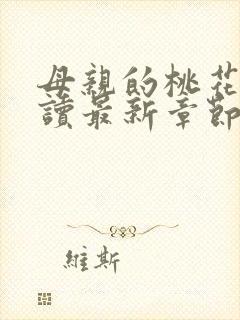 母親的桃花
讀最新章節
維斯